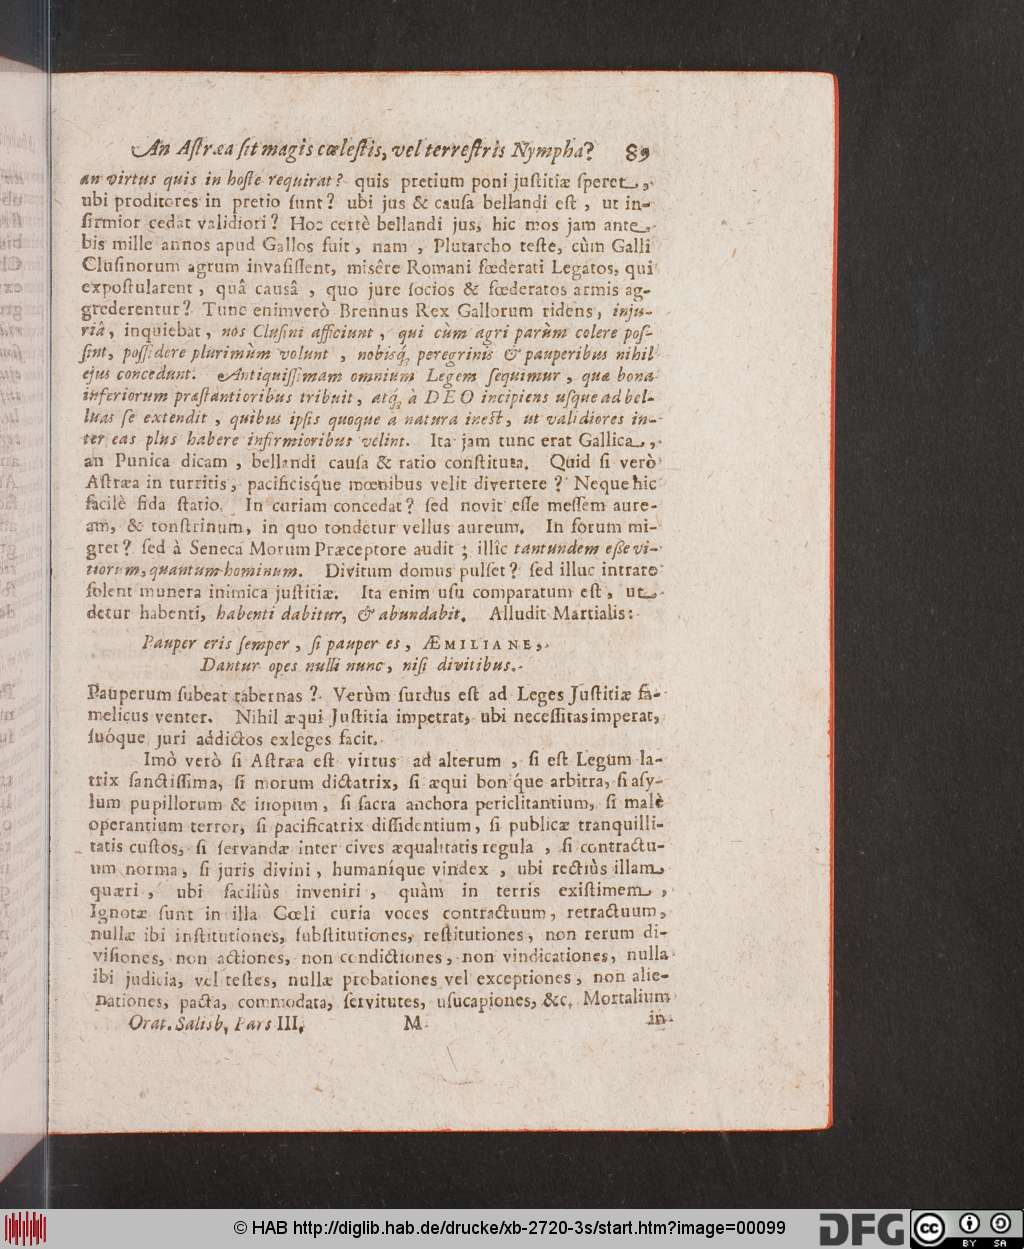 An Astræa sit magis cœlestis, vel terrestris Nympha? 89
an virtus quis in hoste requirat? quis pretium poni justitiæ speret,
ubi proditores in pretio sunt? ubi jus & causa bellandi est, ut in-
firmior cedat validiori? Hoc certè bellandi jus, hic mos jam ante
bis mille annos apud Gallos fuit, nam, Plutarcho teste, cùm Galli
Clusinorum agrum invasissent, misêre Romani fœderati Legatos, qui
expostularent, quâ causâ, quo jure socios & fœderatos armis ag-
grederentur? Tunc enimverò Brennus Rex Gallorum ridens, inju-
riâ, inquiebat, nos Clusini afficiunt, qui cùm agri parùm colere pos-
sint, possidere plurimùm volunt, nobisq; peregrinis & pauperibus nihil
ejus concedunt. Antiquissimam omnium Legem sequimur, quæ bona
inferiorum præstantioribus tribuit, atq; à DEO incipiens usque ad bel-
luas se extendit, quibus ipsis quoque a natura inest, ut validiores in-
ter eas plus habere infirmioribus velint. Ita jam tunc erat Gallica,
an Punica dicam, bellandi causa & ratio constituta. Quid si verò
Astræa in turritis, pacificisq́ue mœnibus velit divertere? Neque hic
facilè fida statio. In curiam concedat? sed novit esse messem aure-
am, & tonstrinum, in quo tondetur vellus aureum. In forum mi-
gret? sed à Seneca Morum Præceptore audit; illîc tantundem esse vi-
tiorum, quantum hominum. Divitum domus pulset? sed illuc intrare
solent munera inimica justitiæ. Ita enim usu comparatum est, ut
detur habenti, habenti dabitur, & abundabit. Alludit Martialis:
Pauper eris semper, si pauper es, ÆMILIANE,
Dantur opes nulli nunc, nisi divitibus.
Pauperum subeat tabernas? Verùm surdus est ad Leges Justitiæ fa-
melicus venter. Nihil æqui Justitia impetrat, ubi necessitas imperat,
suóque juri addictos exleges facit.
Imò verò si Astræa est virtus ad alterum, si est Legum la-
trix sanctissima, si morum dictatrix, si æqui boniq́ue arbitra, si asy-
lum pupillorum & inopum, si sacra anchora periclitantium, si malè
operantium terror, si pacificatrix dissidentium, si publicæ tranquilli-
tatis custos, si servandæ inter cives æqualitatis regula, si contractu-
um norma, si juris divini, humaníque vindex, ubi rectiùs illam
quæri, ubi faciliùs inveniri, quàm in terris existimem,
Ignotæ sunt in illa Cœli curia voces contractuum, retractuum,
nullæ ibi institutiones, substitutiones, restitutiones, non rerum di-
visiones, non actiones, non condictiones, non vindicationes, nulla
ibi judicia, vel testes, nullæ probationes vel exceptiones, non alie-
nationes, pacta, commodata, servitutes, usucapiones, &c. Mortalium
Orat. Salisb. Pars III. M in
© HAB http://diglib.hab.de/drucke/xb-2720-3s/start.htm?image=00099
DFG
cc BY SA